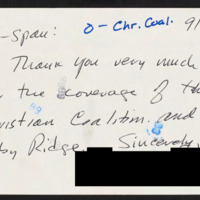 -Span: O-Chr. Coal. 9/
Thank you very much
the coverage of the
ristian Coalition and
by Ridge. Sincerely,